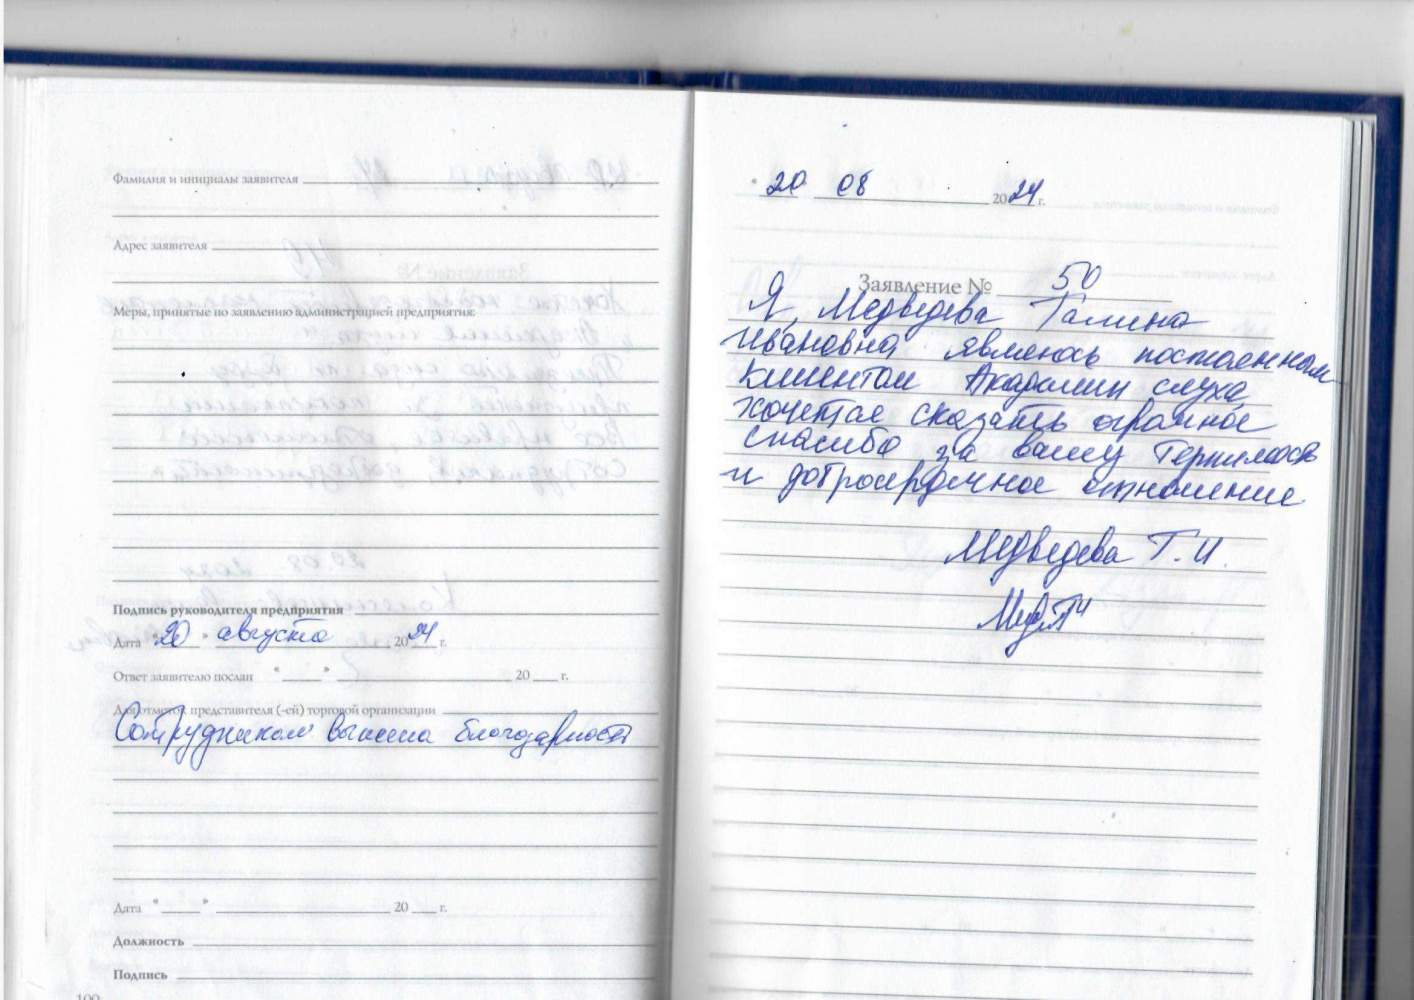 Фамилия и инициалы заявителя
Адрес заявителя
Меры, принятые по заявлению администрацией предприятия:
Подпись руководителя предприятия
Дата "20" августа 2024 г.
Ответ заявителю послан " " 20 г.
Для отметок представителя (-ей) торговой организации
Сотрудникам вынесена благодарность
Дата " " 20 г.
Должность
Подпись
100
20 08 2024 г.
Заявление № 50
Я, Медведева Галина
Ивановна являюсь постоенным
клиентом Академии слуха,
хочется сказать огромное
спасибо за вашу терпимость
и добросердечное отношение
Медведева Г.И.